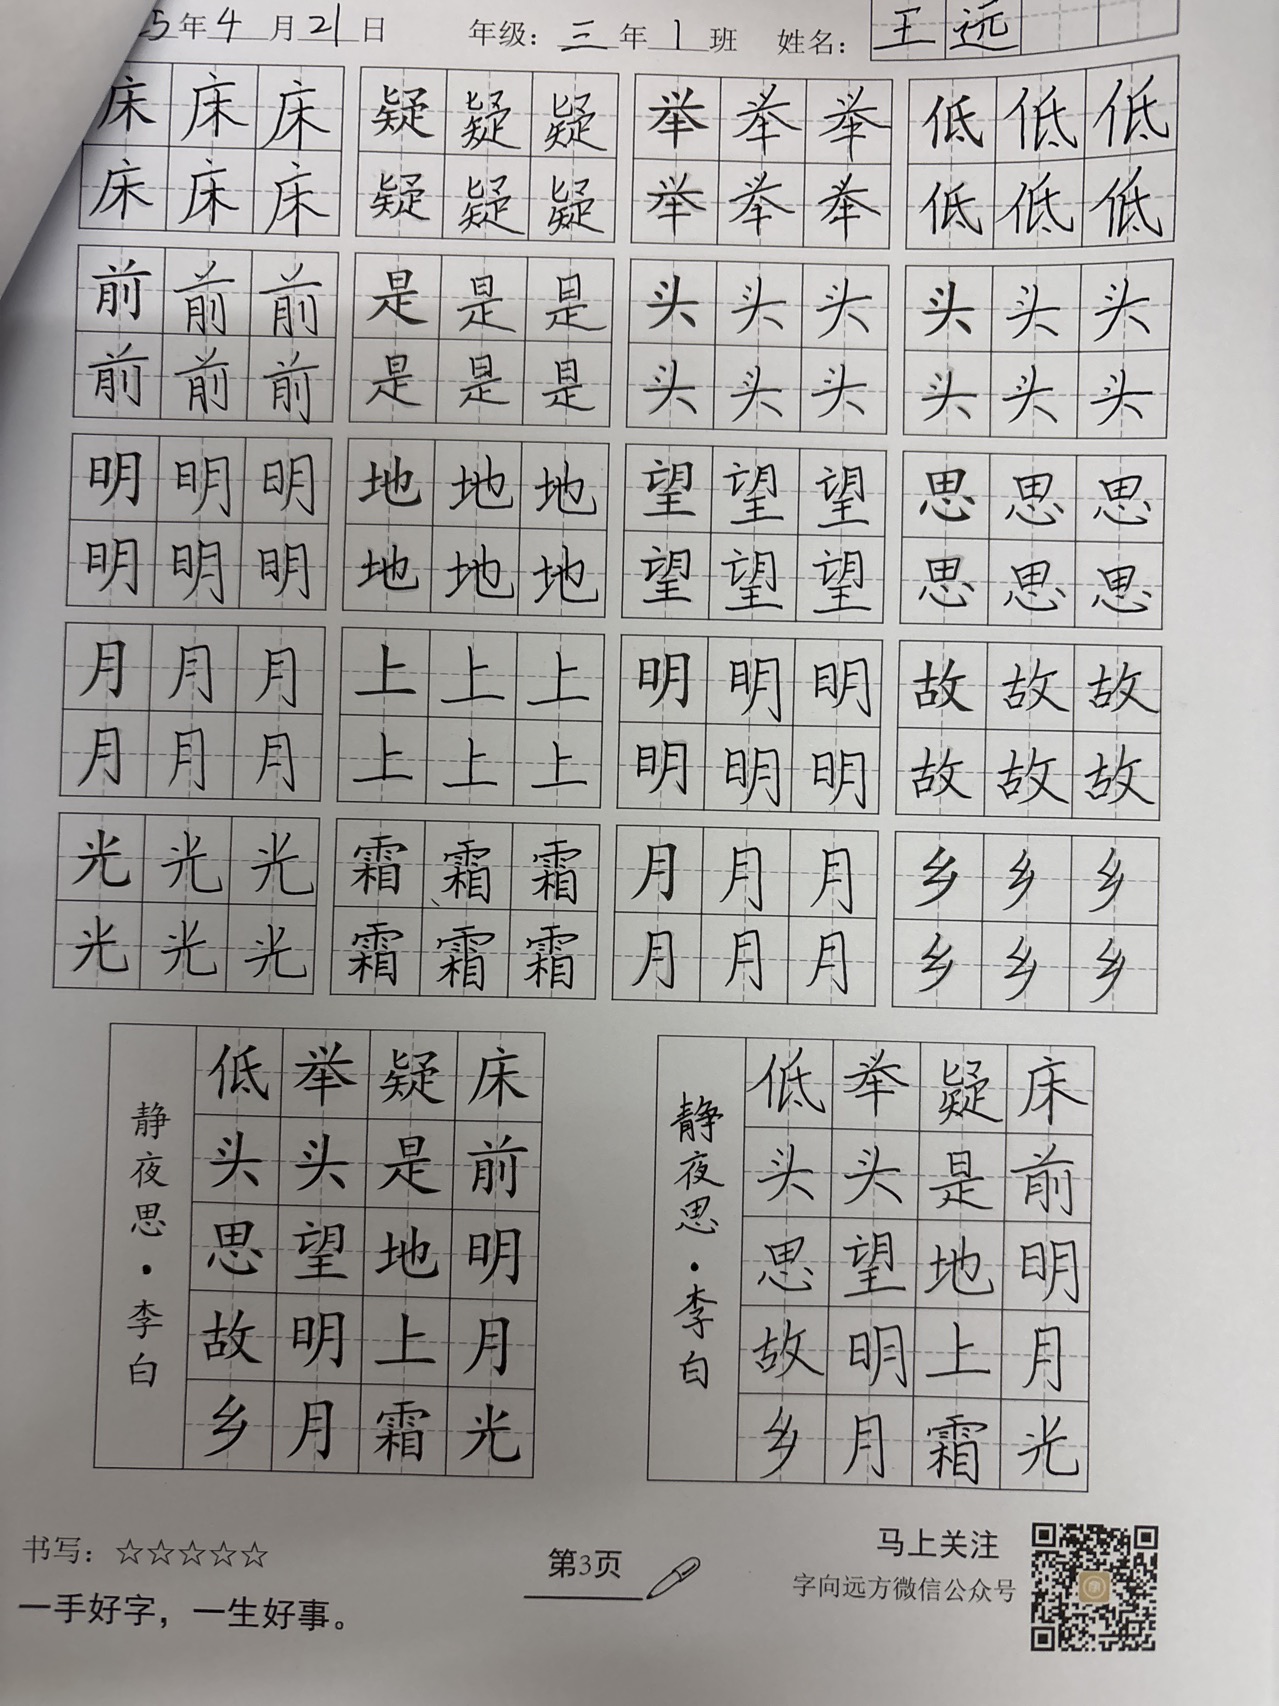 5年4月21日 年级：三年1班 姓名：王远
床床床 疑疑疑 举举举 低低低
床床床 疑疑疑 举举举 低低低
前前前 是是是 头头头 头头头
前前前 是是是 头头头 头头头
明明明 地地地 望望望 思思思
明明明 地地地 望望望 思思思
月月月 上上上 明明明 故故故
月月月 上上上 明明明 故故故
光光光 霜霜霜 月月月 乡乡乡
光光光 霜霜霜 月月月 乡乡乡
床前明月光
疑是地上霜
举头望明月
低头思故乡
静夜思·李白
床前明月光
疑是地上霜
举头望明月
低头思故乡
静夜思·李白
书写：☆☆☆☆☆
一手好字，一生好事。
第3页
马上关注
字向远方微信公众号